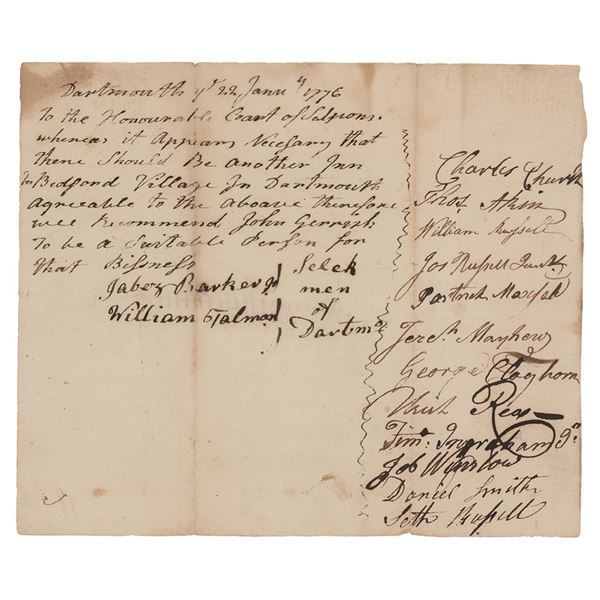 Dartmouth ye 22 Janry 1776
To the Honourable Coart of Sessions
whereas it Appears Necesary that
there Should Be another Inn
In Bedford Village In Dartmouth
agreeable to the aboave therefore
wee Recommend John Gerrish
To be a Suitable Person for
that Bissness
Jabez Barker Jr
William Talman
Selek
men
of
Dartmo
Charles Church
Thos Akin
William Russell
Jos Russell
Patrick Maxfield
Jereh Mayhew
George Claghorn
Timo Ingraham Jnr
Job Winslow
Daniel Smith
Seth Russell